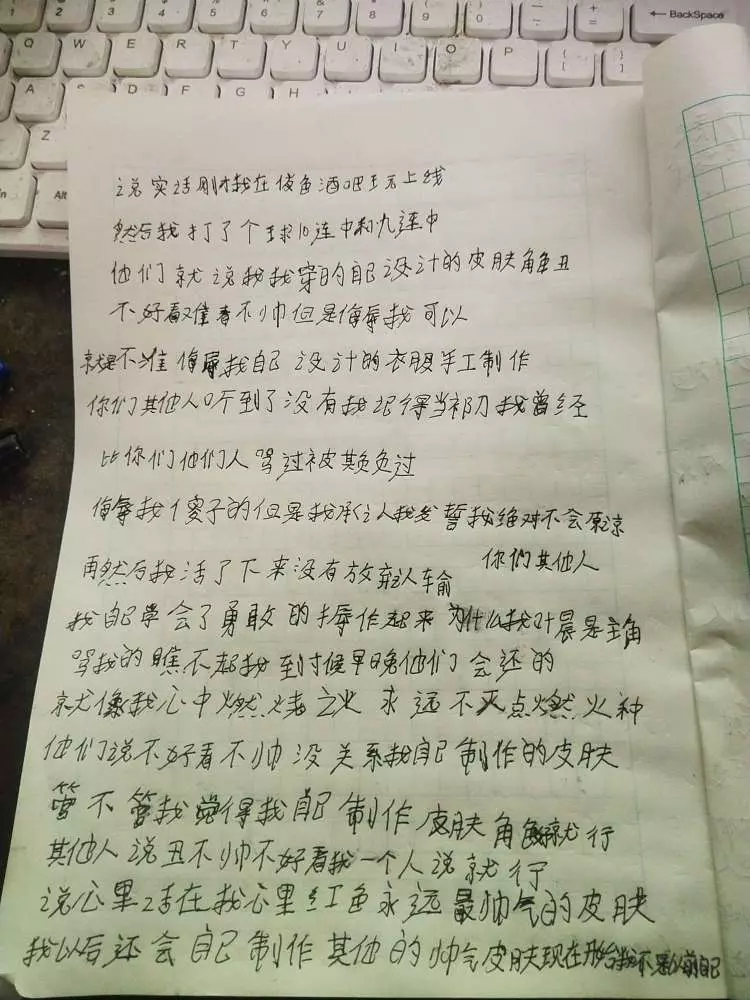 BackSpace
Q W E R T Y U I O P
A S D F G H
Z
Alt
说实话刚才我在俊鱼酒吧王者上线
然后我打了个球10连中和九连中
他们就说我我穿的自己设计的皮肤角色丑
不好看又值着不帅但是侮辱我可以
就是不准侮辱我自己设计的衣服手工制作
你们其他人听到了没有我记得当初我曾经
比你们他们人骂过被欺负过
侮辱我个傻子的但是我承认我发誓我绝对不会原谅
你们其他人
再然后我活了下来没有放弃认输
我自己学会了勇敢的振作起来为什么我叶晨是主角
骂我的瞧不起我到时候早晚他们会还的
就像我心中燃烧之火永远不灭点燃火种
他们说不好看不帅没关系我自己制作的皮肤
管不管我觉得我自己制作皮肤角色就行
其他人说丑不帅不好看我一个人说就行
说心里话在我心里红色永远最帅气的皮肤
我以后还会自己制作其他的帅气皮肤现在开始我不是以前自己